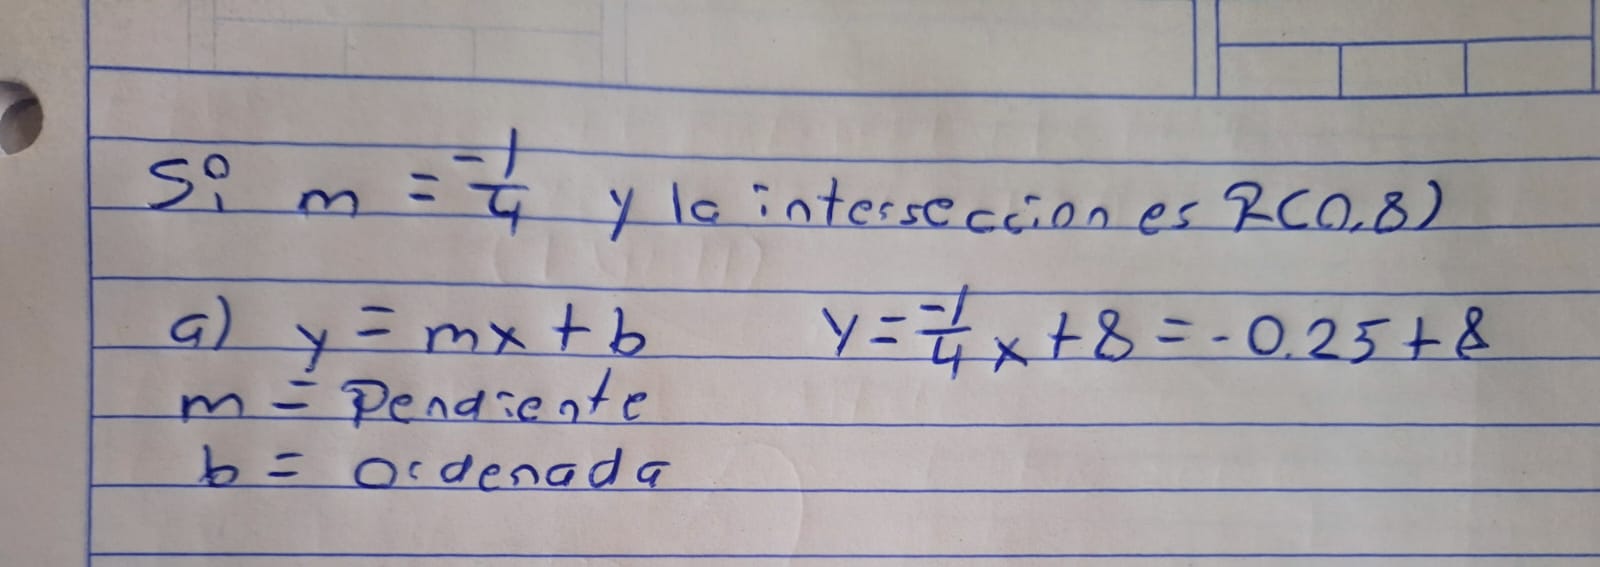 Si m = -1/4 y la interseccion es R(0,8)
a) y = mx + b y = -1/4 x + 8 = -0.25 + 8
m = Pendiente
b = ordenada